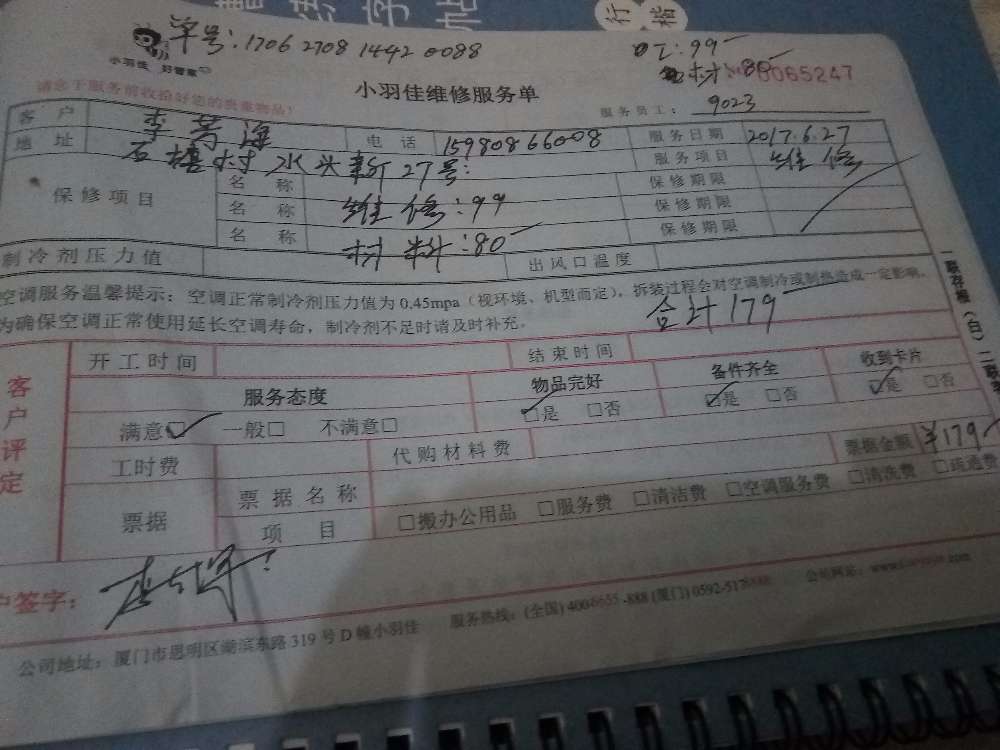 行楷
单号:1706 2708 1442 0088
工:99
材:80
065247
小羽佳 好管家
小羽佳维修服务单
请您于服务前收拾好您的贵重物品!
服务员工: 9023
客户
地址 石塘村水头新27号
电话 15980866008
服务日期 2017.6.27
服务项目 维修
保修项目
名称 保修期限
名称 维修:99 保修期限
名称 材料:80 保修期限
制冷剂压力值 出风口温度
空调服务温馨提示:空调正常制冷剂压力值为0.45mpa(视环境、机型而定),拆装过程会对空调制冷或制热造成一定影响。
为确保空调正常使用延长空调寿命,制冷剂不足时请及时补充。
合计179
一联存根(白)二联
客户评定
开工时间 结束时间
服务态度 物品完好 备件齐全 收到卡片
满意☑ 一般□ 不满意□ ☑是 □否 ☑是 □否 ☑是 □否
工时费 代购材料费 票据金额 ¥179
票据 票据名称
项目 □搬办公用品 □服务费 □清洁费 □空调服务费 □清洗费 □疏通费
户签字:
公司地址:厦门市思明区湖滨东路319号D幢小羽佳 服务热线:(全国)400-6655-888 (厦门)0592-5178888 公司网站:www.